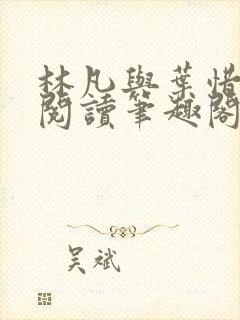 林凡與葉惜
閱讀筆趣閣
吴斌